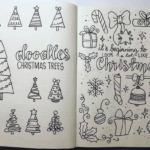 doodles
CHRISTMAS TREES
it's beginning to
look a lot LIKE
Christmas